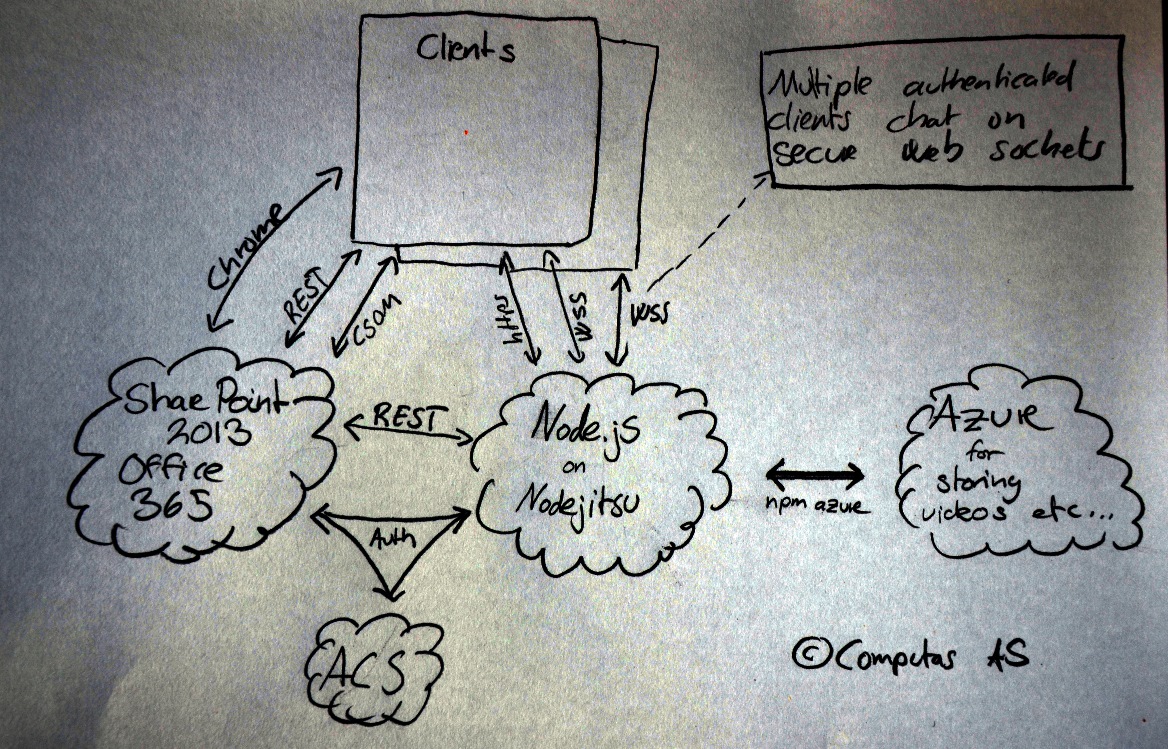 Clients
Multiple authenticated
clients chat on
secure web sockets
Chrome
REST
CSOM
https
WSS
WSS
SharePoint
2013
Office
365
REST
Node.js
on
Nodejitsu
npm azure
Azure
for
storing
videos etc...
Auth
ACS
©Computas AS